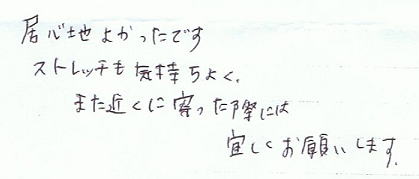 居心地よかったです
ストレッチも気持ちよく、
また近くに寄った際には
宜しくお願いします。